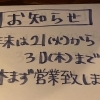 お知らせ
年末は21(火)から
30(木)まで
休まず営業致します